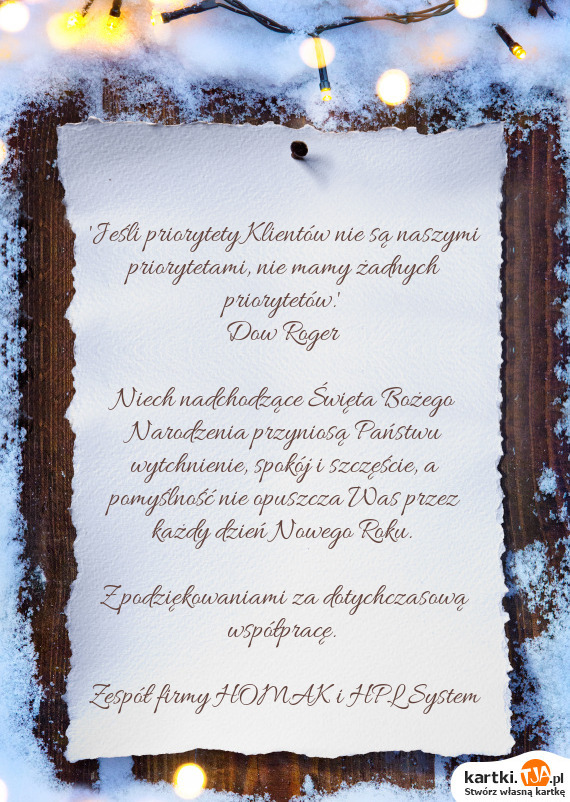 'Jeśli priorytety Klientów nie są naszymi
priorytetami, nie mamy żadnych
priorytetów.'
Dow Roger
Niech nadchodzące Święta Bożego
Narodzenia przyniosą Państwu
wytchnienie, spokój i szczęście, a
pomyślność nie opuszcza Was przez
każdy dzień Nowego Roku.
Z podziękowaniami za dotychczasową
współpracę.
Zespół firmy HOMAK i HPL System
kartki.TJA.pl
Stwórz własną kartkę